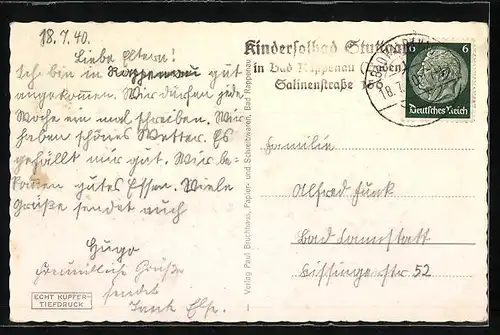 18.7.40.
Liebe Eltern!
Ich bin in Rappenau gut
angekommen. Wir dürfen jede
Woche ein mal schreiben. Wir
haben schönes Wetter. Es
gefällt mir gut. Wir be-
kommen gutes Essen. Viele
Grüße sendet euch
Hugo
Freundliche Grüße
sendet
Tante Else.
ECHT KUPFER-
TIEFDRUCK
Verlag Paul Bruchhaus, Papier- und Schreibwaren, Bad Rappenau
Kindersolbad Stuttgart
in Bad Rappenau
Salinenstraße
6 6
Deutsches Reich
Familie
Alfred Funk
Bad Cannstatt
Kissingerstr 52